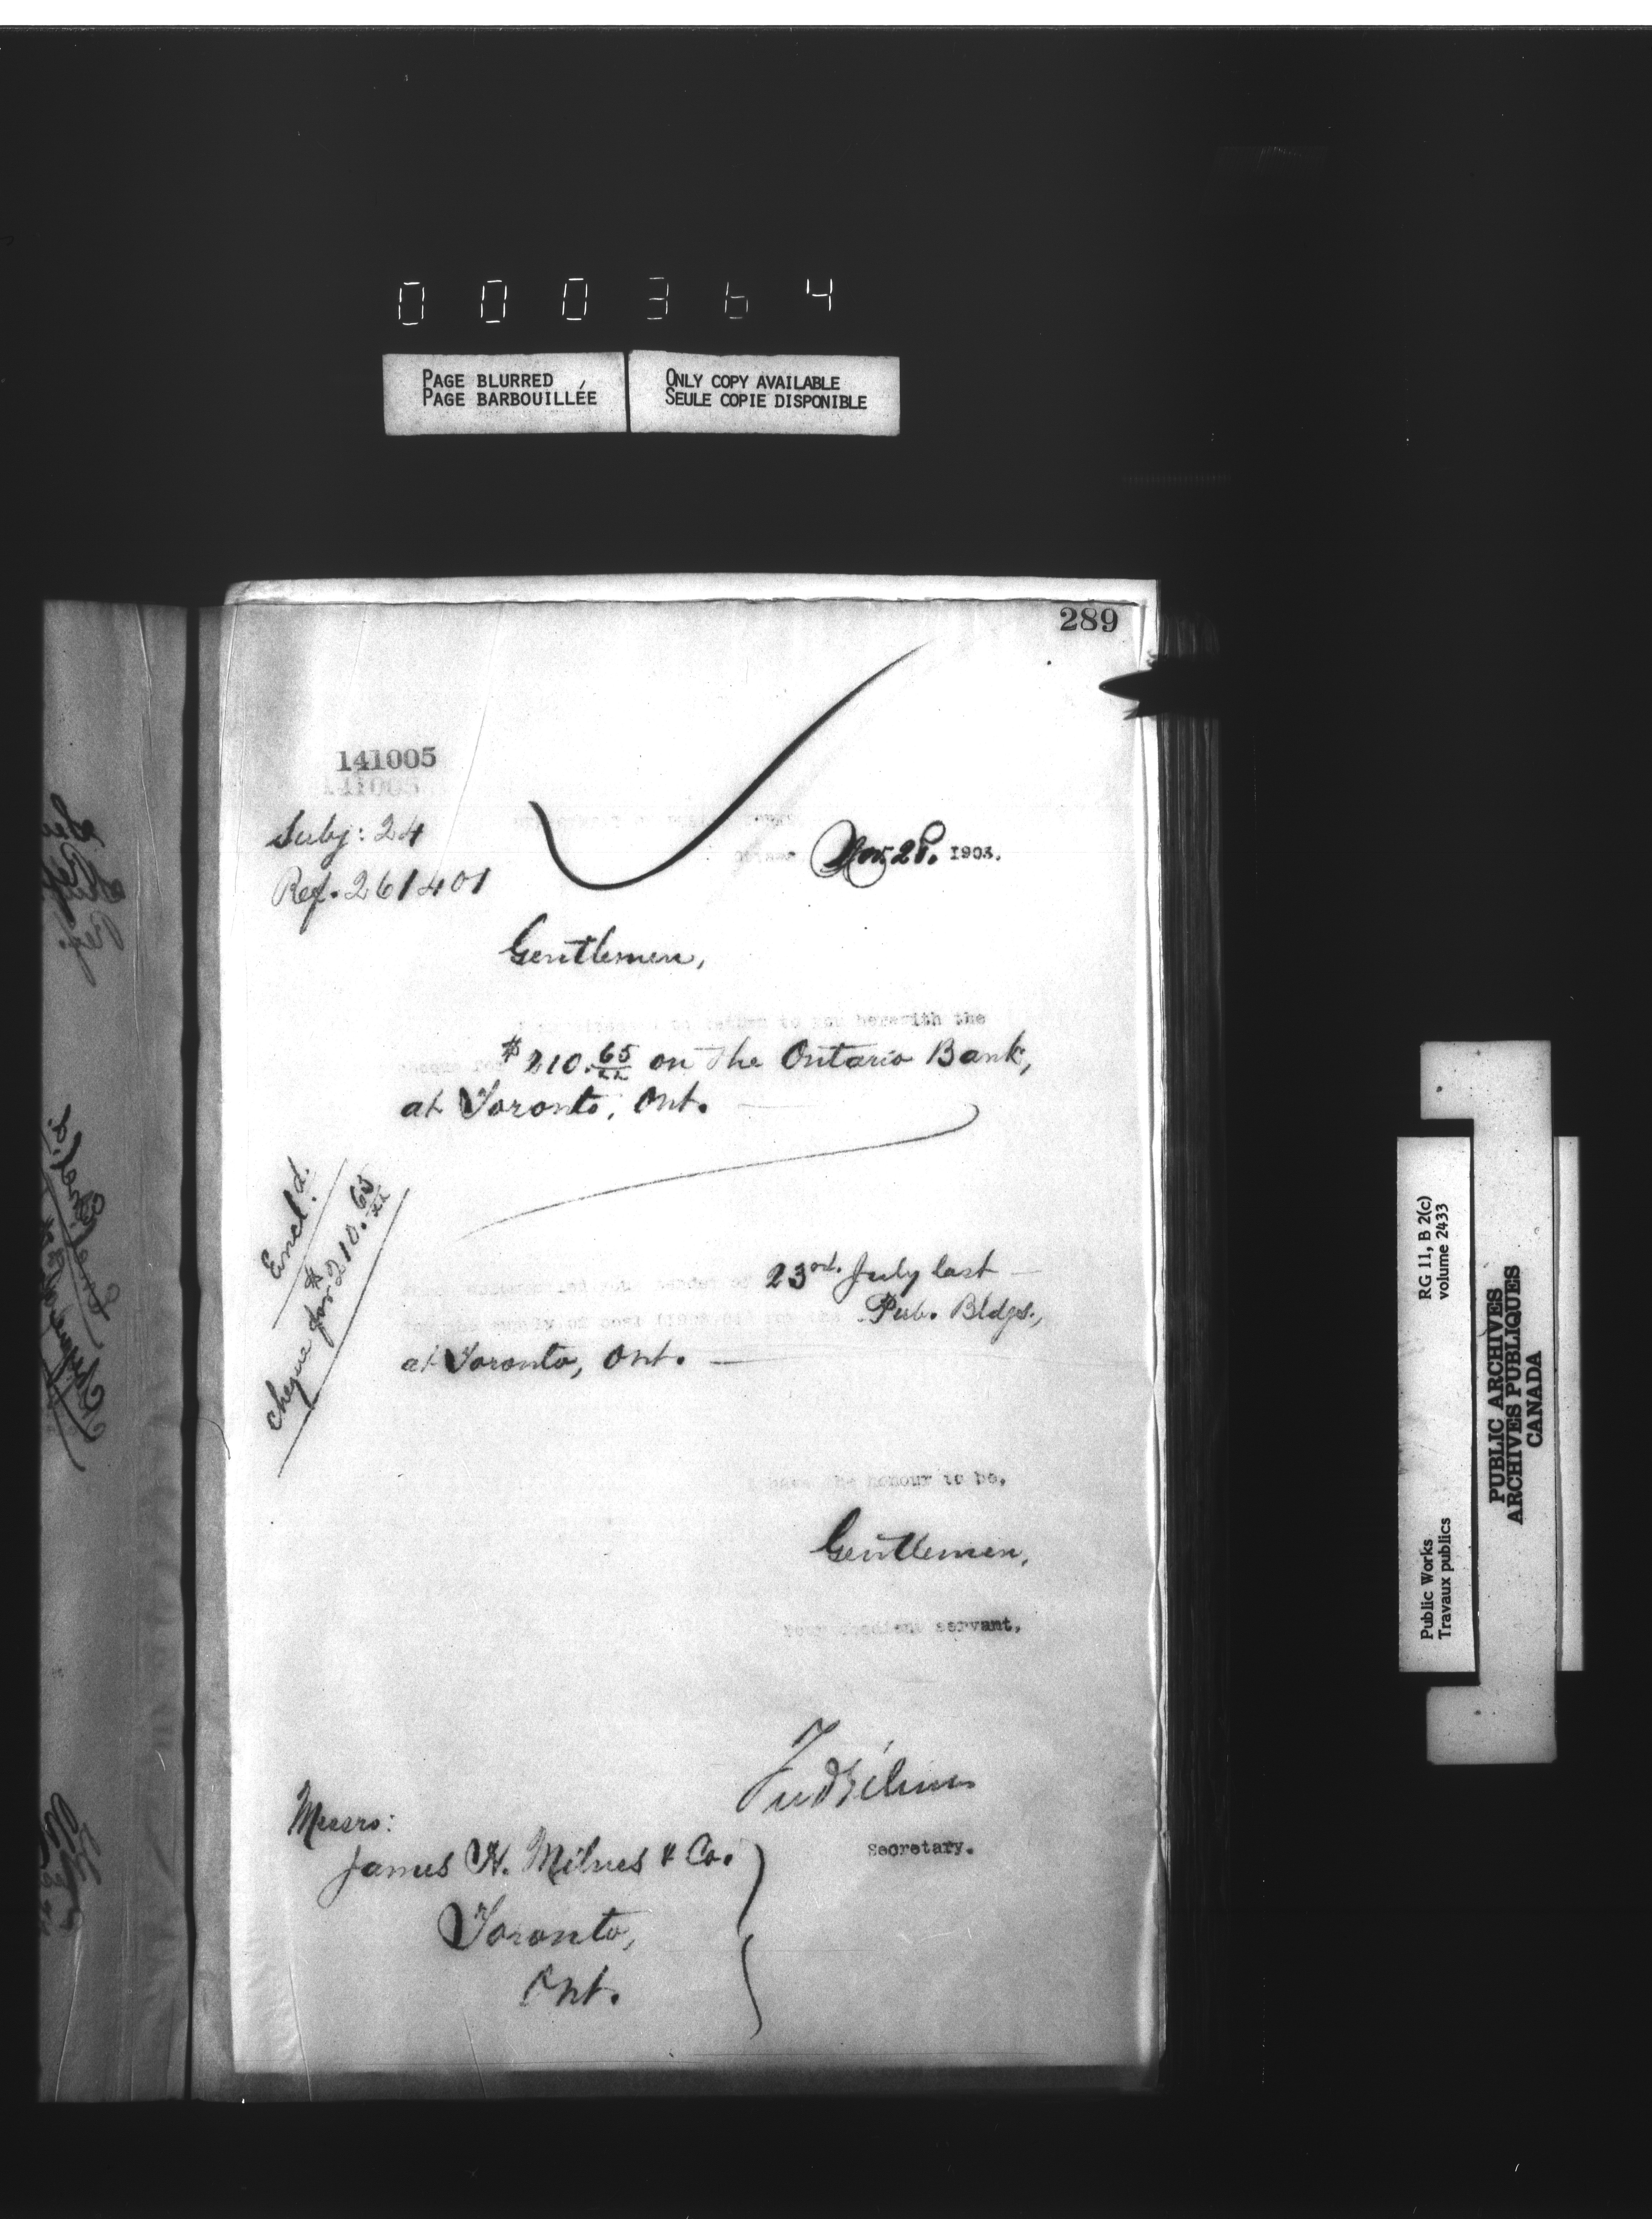 000364
PAGE BLURRED
PAGE BARBOUILLÉE
ONLY COPY AVAILABLE
SEULE COPIE DISPONIBLE
289
141005
Subj: 24
Ref. 261401
Ottawa Nov. 28. 1903.
Gentlemen,
to return to you herewith the
cheque for $210.65 on the Ontario Bank,
at Toronto, Ont.
Encl'd.
cheque for $210.65
your tender of 23rd. July last
for the supply of coal Pub. Bldgs.,
at Toronto, Ont.
I have the honour to be,
Gentlemen,
Your obedient servant,
Secretary.
Messrs:
James H. Milnes & Co.
Toronto,
Ont.
RG 11, B 2(c)
volume 2433
Public Works
Travaux publics
PUBLIC ARCHIVES
ARCHIVES PUBLIQUES
CANADA